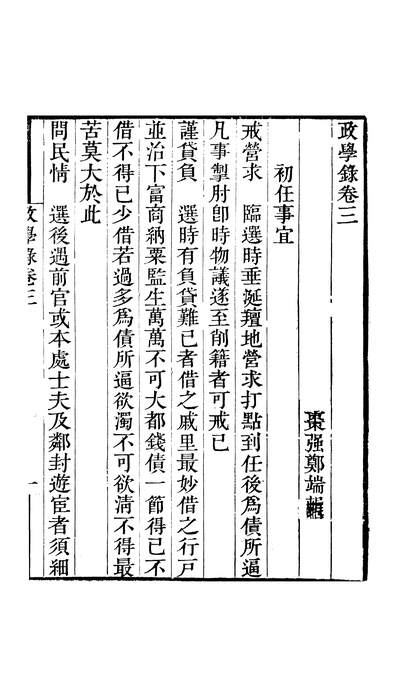 政學錄卷三
棗强鄭端輯
初任事宜
戒營求　臨選時垂涎羶地營求打點到任後爲債所逼
凡事掣肘卽時物議遂至削籍者可戒已
謹貸負　選時有負貸難已者借之戚里最妙借之行戸
並治下富商納粟監生萬萬不可大都錢債一節得已不
借不得已少借若過多爲債所逼欲濁不可欲淸不得最
苦莫大於此
問民情　選後遇前官或本處士夫及鄰封遊宦者須細
政學錄卷三　一